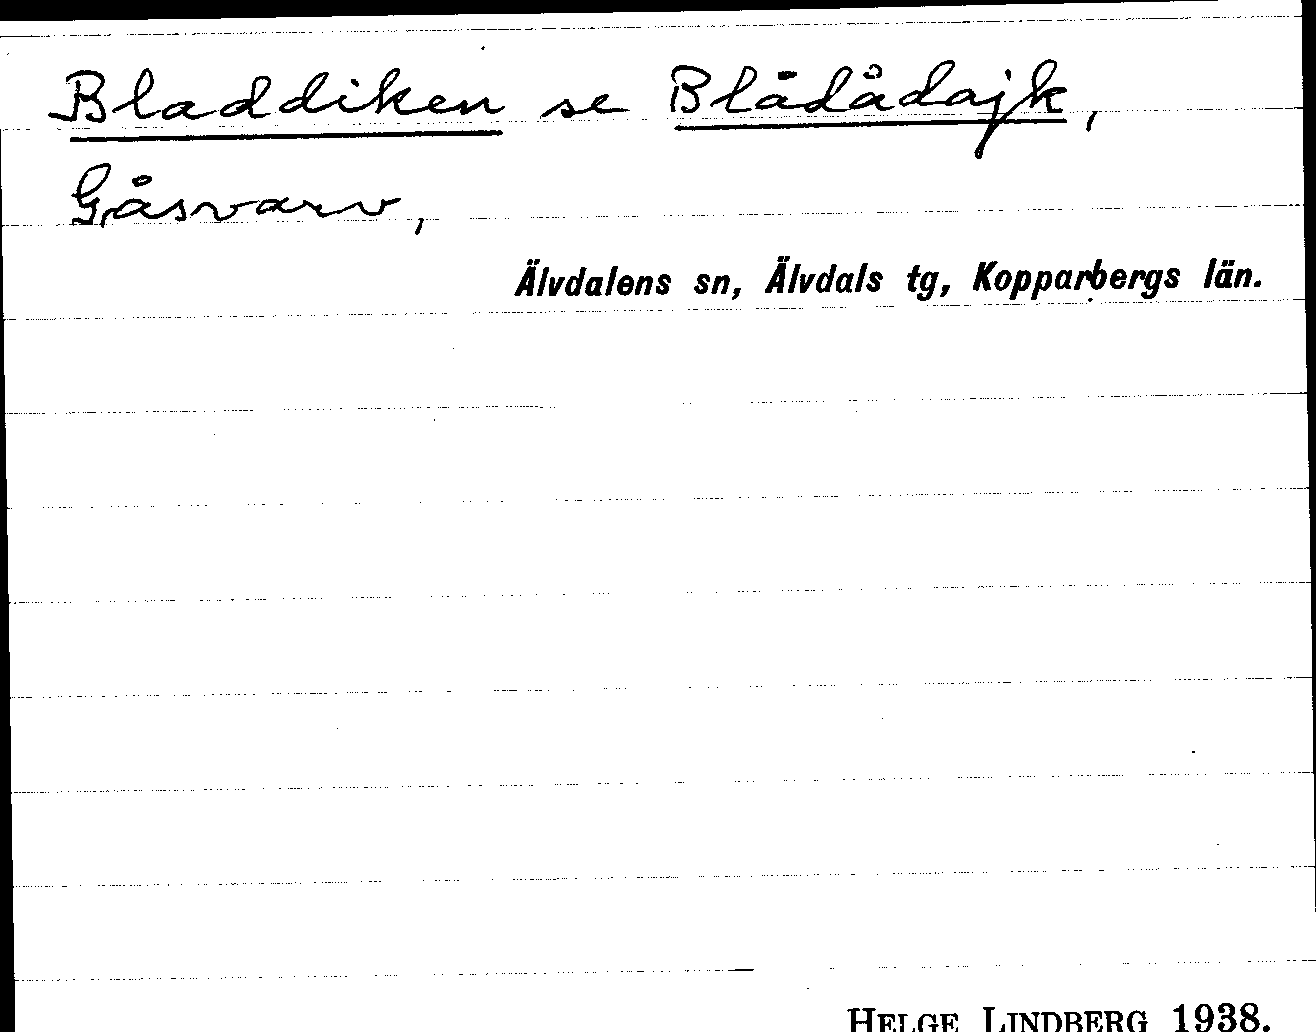 Bladdiken se Blådådajk,
Gåsvarv,
Älvdalens sn, Älvdals tg, Kopparbergs län.
HELGE LINDBERG 1938.